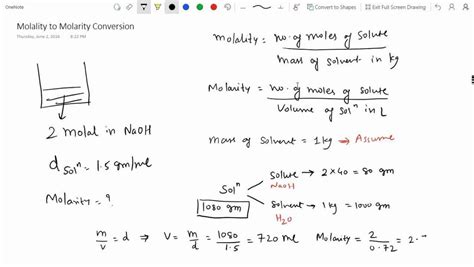 OneNote
Convert to Shapes
Exit Full Screen Drawing
Molality to Molarity Conversion
Thursday, June 2, 2016 8:22 PM
Molality = no. of moles of solute
mass of solvent in kg
Molarity = no. of moles of solute
Volume of solⁿ in L
2 molal in NaOH
d solⁿ = 1.5 gm/ml
Molarity = ?
mass of solvent = 1 kg → Assume
Solⁿ
1080 gm
Solute → 2 × 40 = 80 gm
NaOH
Solvent → 1 kg = 1000 gm
H₂O
m/v = d ⇒ V = m/d = 1080/1.5 = 720 ml Molarity = 2/0.72 = 2.